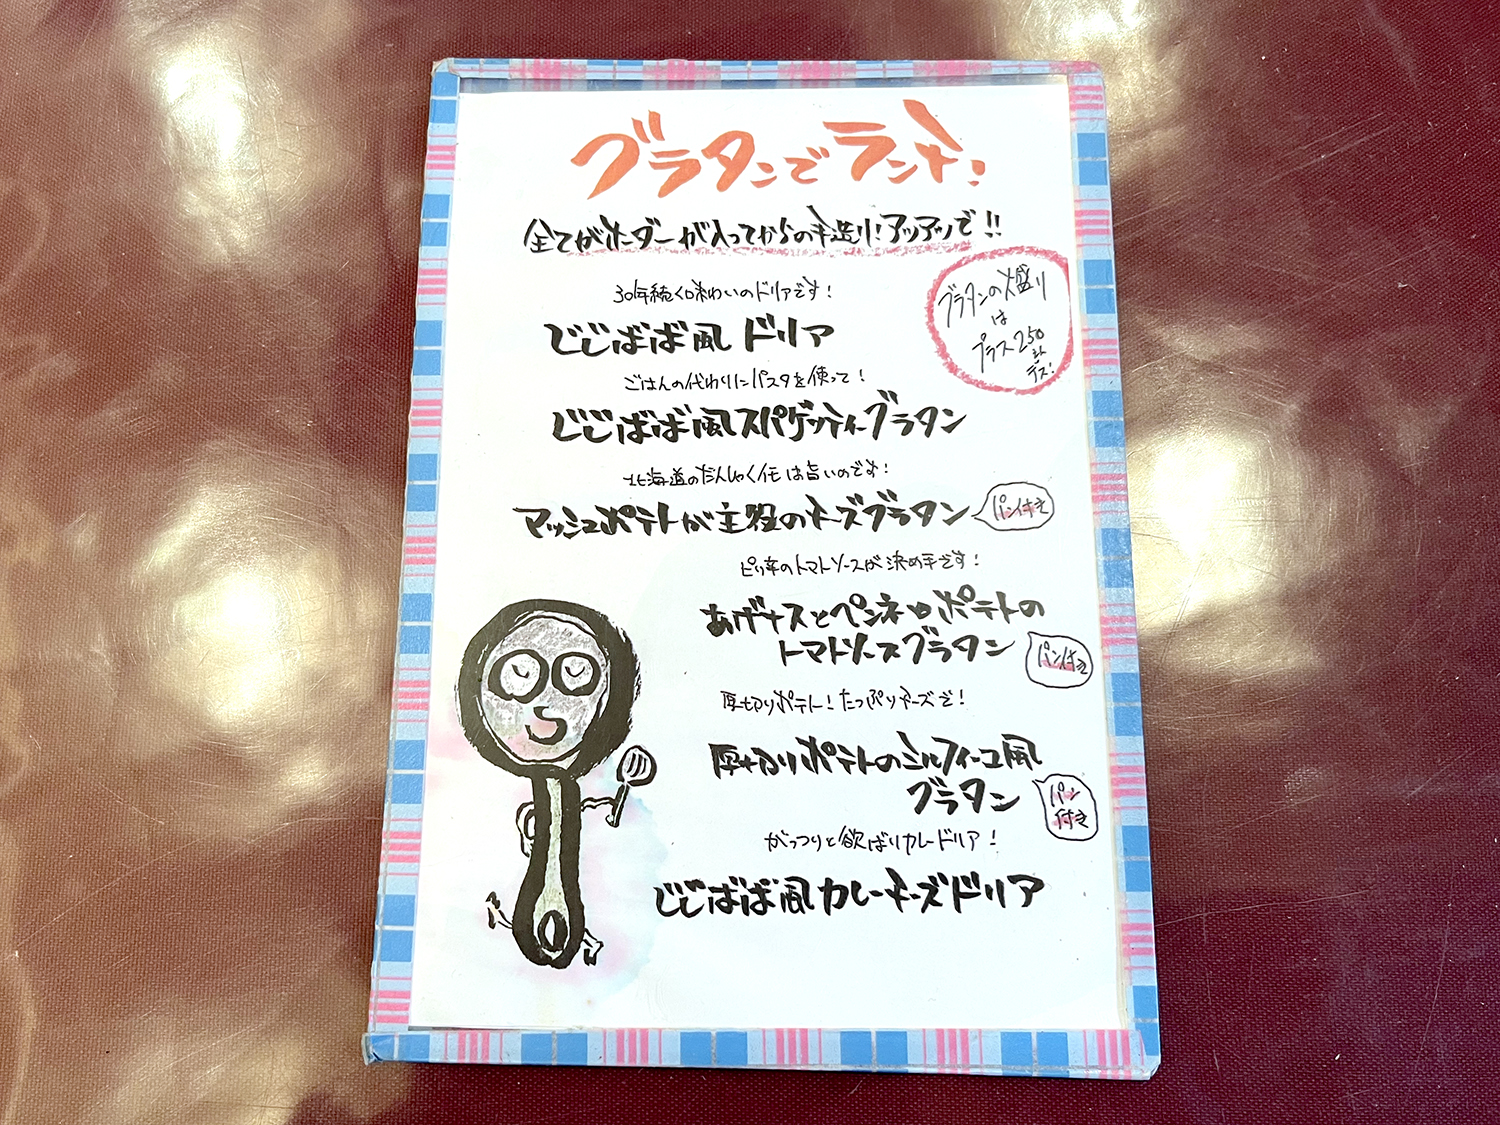 グラタンでランチ!
全てがオーダーが入ってからの手造り!アツアツで!!
グラタンの大盛り
は
プラス250
デス!
30年続く口味わいのドリアです!
じじばば風ドリア
ごはんの代わりにパスタを使って!
じじばば風スパゲッティーグラタン
北海道のだんしゃくイモは旨いのです!
マッシュポテトが主役のチーズグラタン
パン付き
ピリ辛のトマトソースが決め手です!
あげナスとペンネとポテトの
トマトソースグラタン
パン付き
厚切りポテト!たっぷりチーズで!
厚切りポテトのミルフィーユ風
グラタン
パン
付き
がっつりと欲ばりカレードリア!
じじばば風カレーチーズドリア